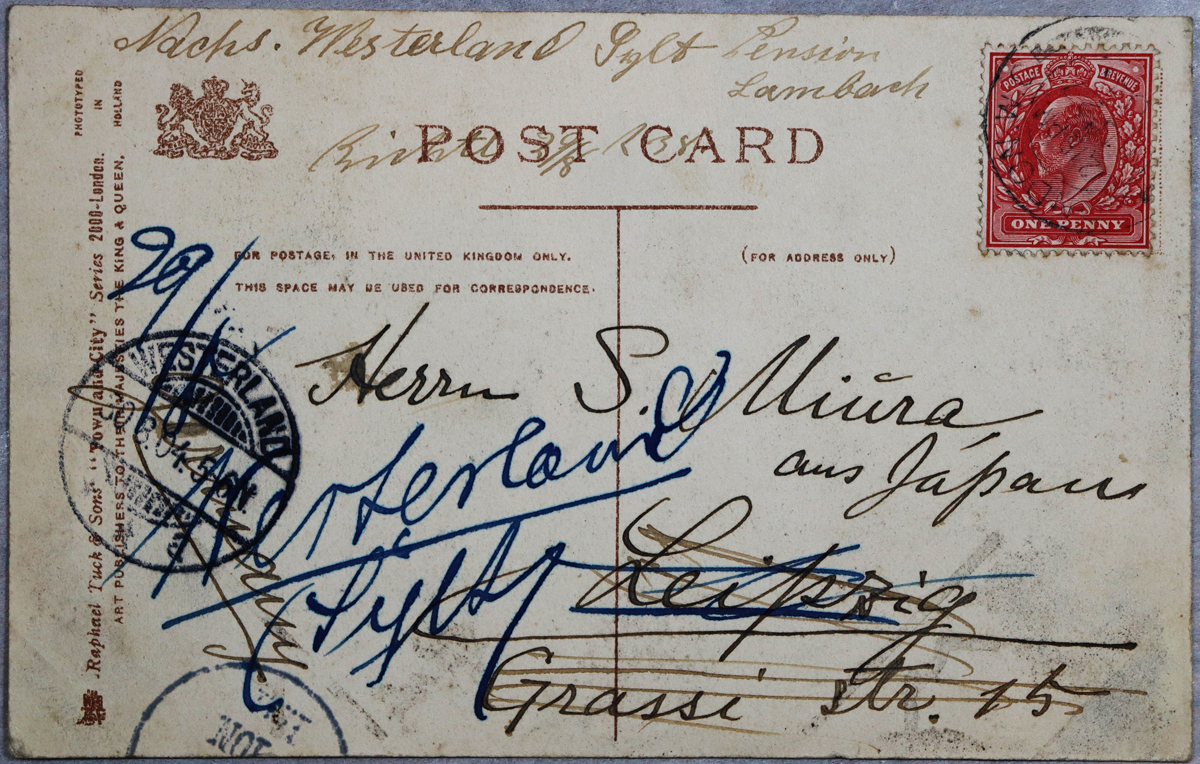 Nachs. Westerland Sylt Pension
Lambach
POSTAGE & REVENUE
ONE PENNY
POST CARD
FOR POSTAGE, IN THE UNITED KINGDOM ONLY.
THIS SPACE MAY BE USED FOR CORRESPONDENCE.
(FOR ADDRESS ONLY)
PHOTOTYPED
IN
HOLLAND
Raphael Tuck & Sons' "Town and City" Series 2000-London.
ART PUBLISHERS TO THEIR MAJESTIES THE KING & QUEEN,
29/
WESTERLAND
Herrn S. Miūra
aus Japan
Westerland
Sylt
Leipzig
Grassi Str. 15
Germany